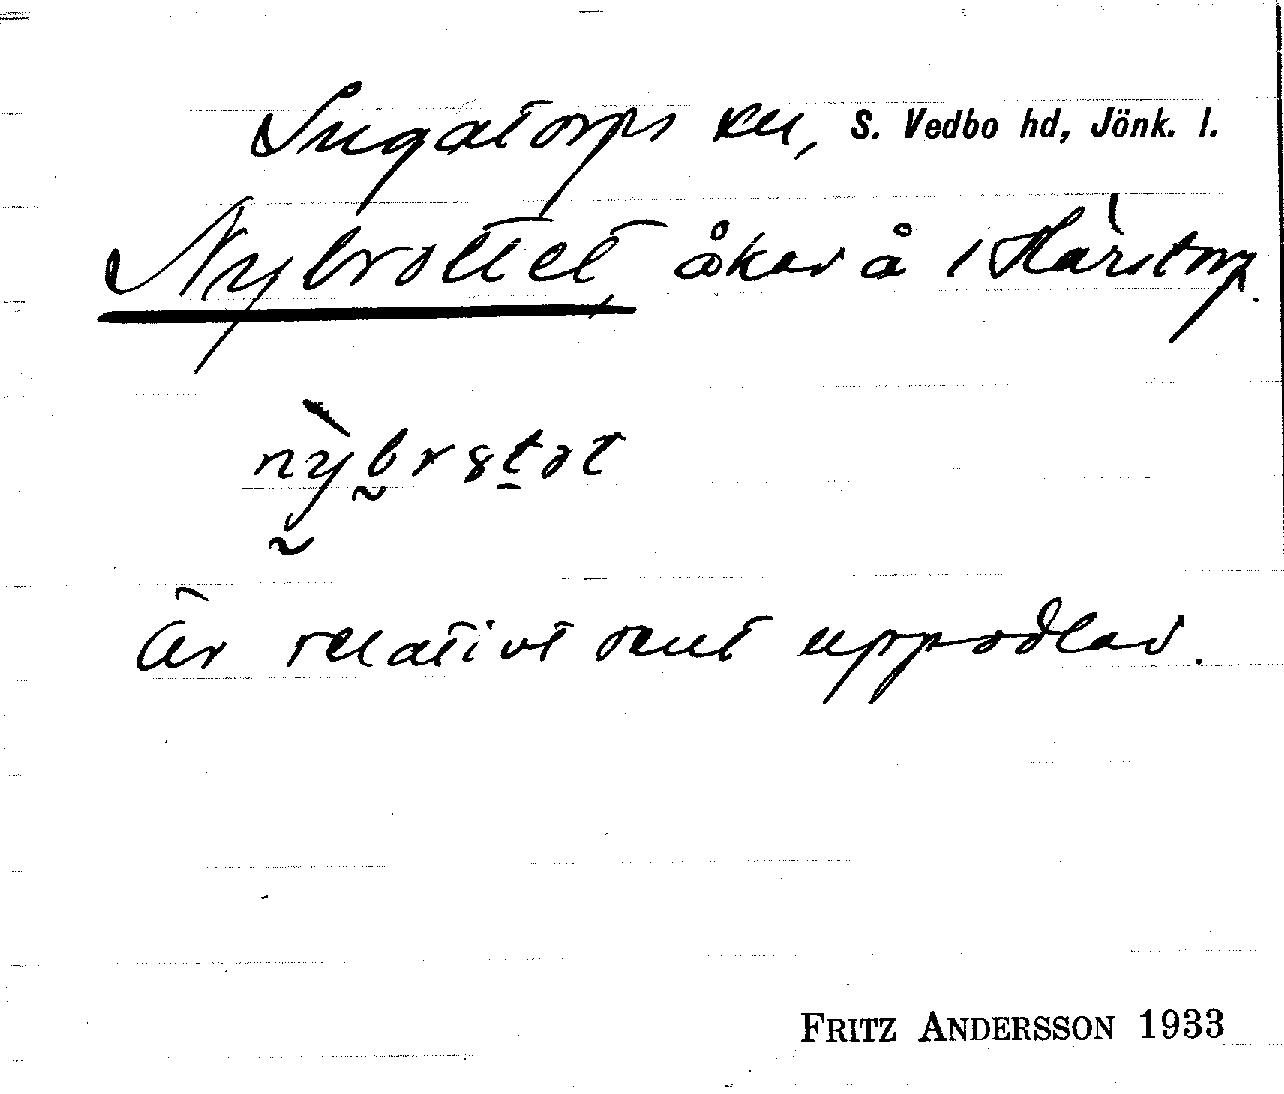 Ingatorps sn, S. Vedbo hd, Jönk. l.
Nybrottet, åker å 1 Härstorp.
Är relativt sent uppodlad.
FRITZ ANDERSSON 1933